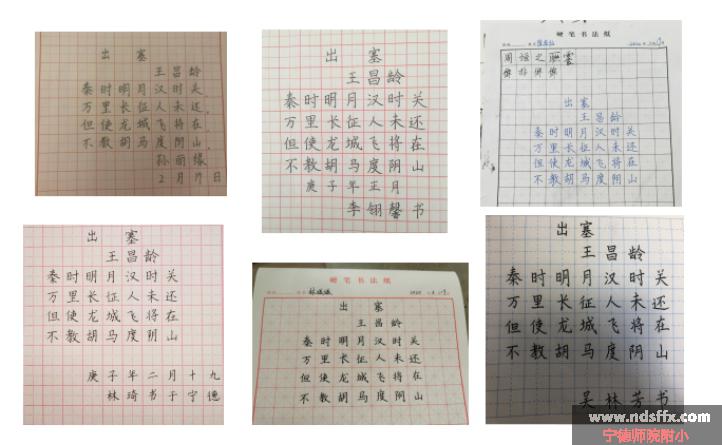 出塞
王昌龄
秦时明月汉时关
万里长征人未还
但使龙城飞将在
不教胡马度阴山
孙丽缘
2月17日
出塞
王昌龄
秦时明月汉时关
万里长征人未还
但使龙城飞将在
不教胡马度阴山
庚子年正月
李翎馨书
硬笔书法纸
周
之
出塞
王昌龄
秦时明月汉时关
万里长征人未还
但使龙城飞将在
不教胡马度阴山
出塞
王昌龄
秦时明月汉时关
万里长征人未还
但使龙城飞将在
不教胡马度阴山
庚子年二月十九
林琦书于宁德
硬笔书法纸
出塞
王昌龄
秦时明月汉时关
万里长征人未还
但使龙城飞将在
不教胡马度阴山
出塞
王昌龄
秦时明月汉时关
万里长征人未还
但使龙城飞将在
不教胡马度阴山
吴林芳书
www.ndsffx.com
宁德师院附小